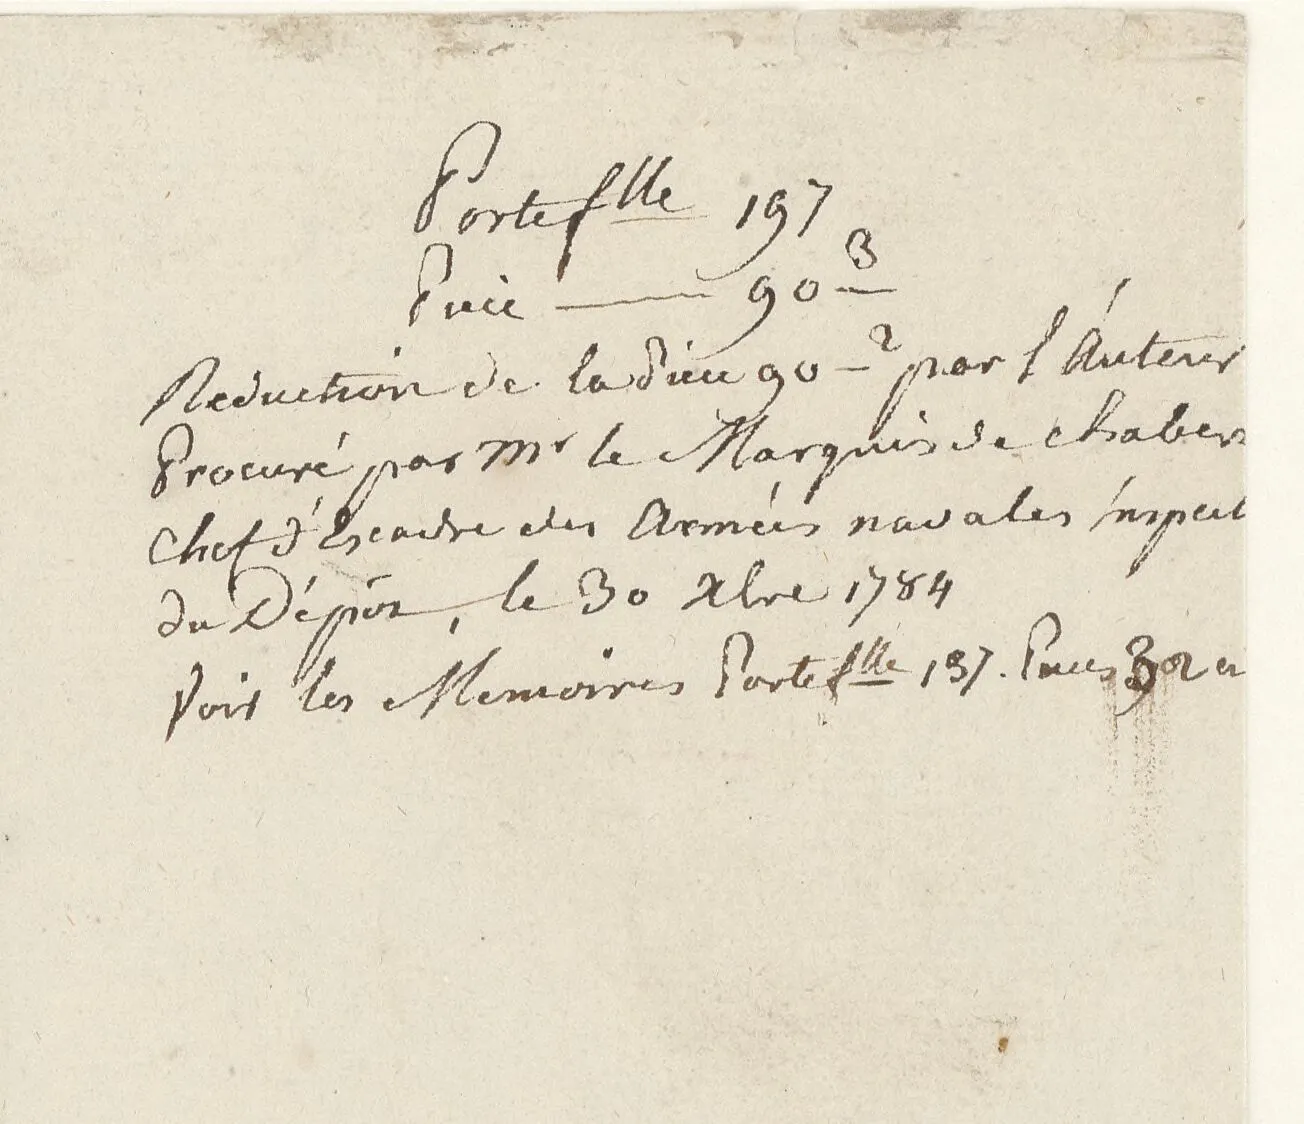 Portef.lle 197
Piece —— 90-3
Reduction de la Piece 90-2 par l'Auteur
Procuré par Mr le Marquis de Chaber
Chef d'Escadre des Armées navales inspect
du Dépôt, le 30 Xbre 1784
Voir les Memoires Portef.lle 137. Pieces 3